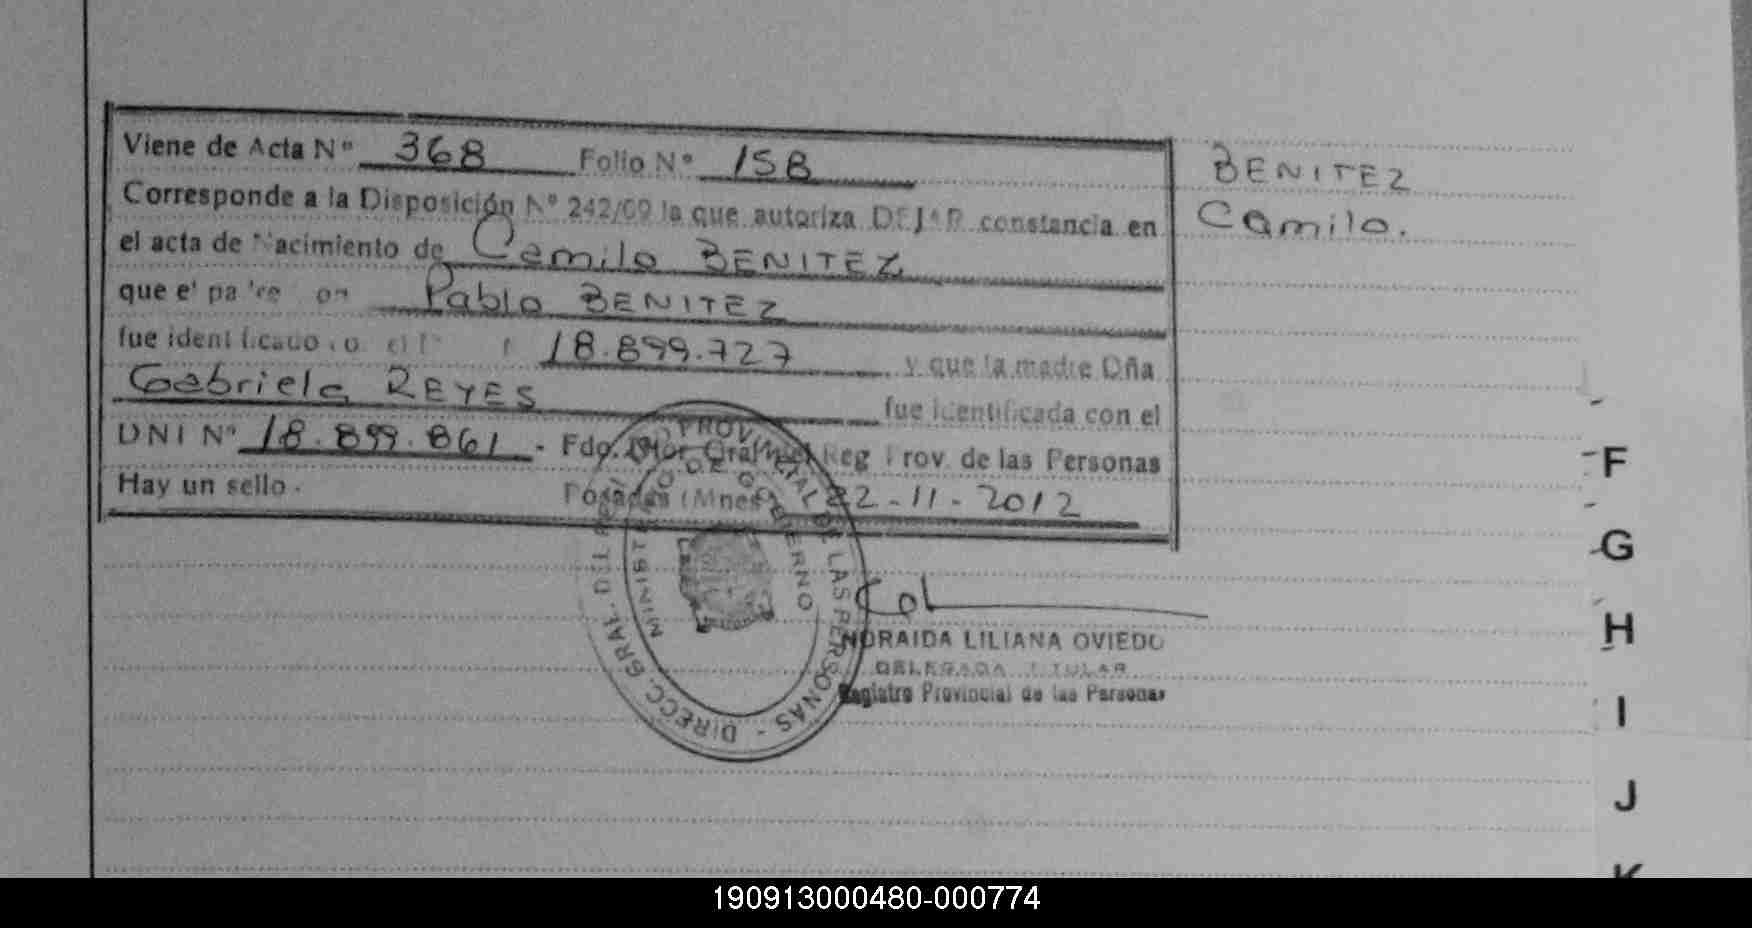 Viene de Acta Nº 368 Folio Nº 158
Corresponde a la Disposición Nº 242/09 la que autoriza DEJAR constancia en
el acta de Nacimiento de Camilo BENITEZ
que el padre Don Pablo BENITEZ
fue identificado 18.899.727 y que la madre Dña
Gabriela REYES fue identificada con el
DNI Nº 18.899.861 - Fdo. Dtor. Gral. del Reg Prov. de las Personas
Hay un sello. Posadas (Mnes) 22-11-2012
BENITEZ
Camilo.
DIRECC. GRAL. DEL REG. PROVINCIAL DE LAS PERSONAS -
MINISTERIO DE GOBIERNO
NORAIDA LILIANA OVIEDO
DELEGADA TITULAR
Registro Provincial de las Personas
F
G
H
I
J
K
190913000480-000774